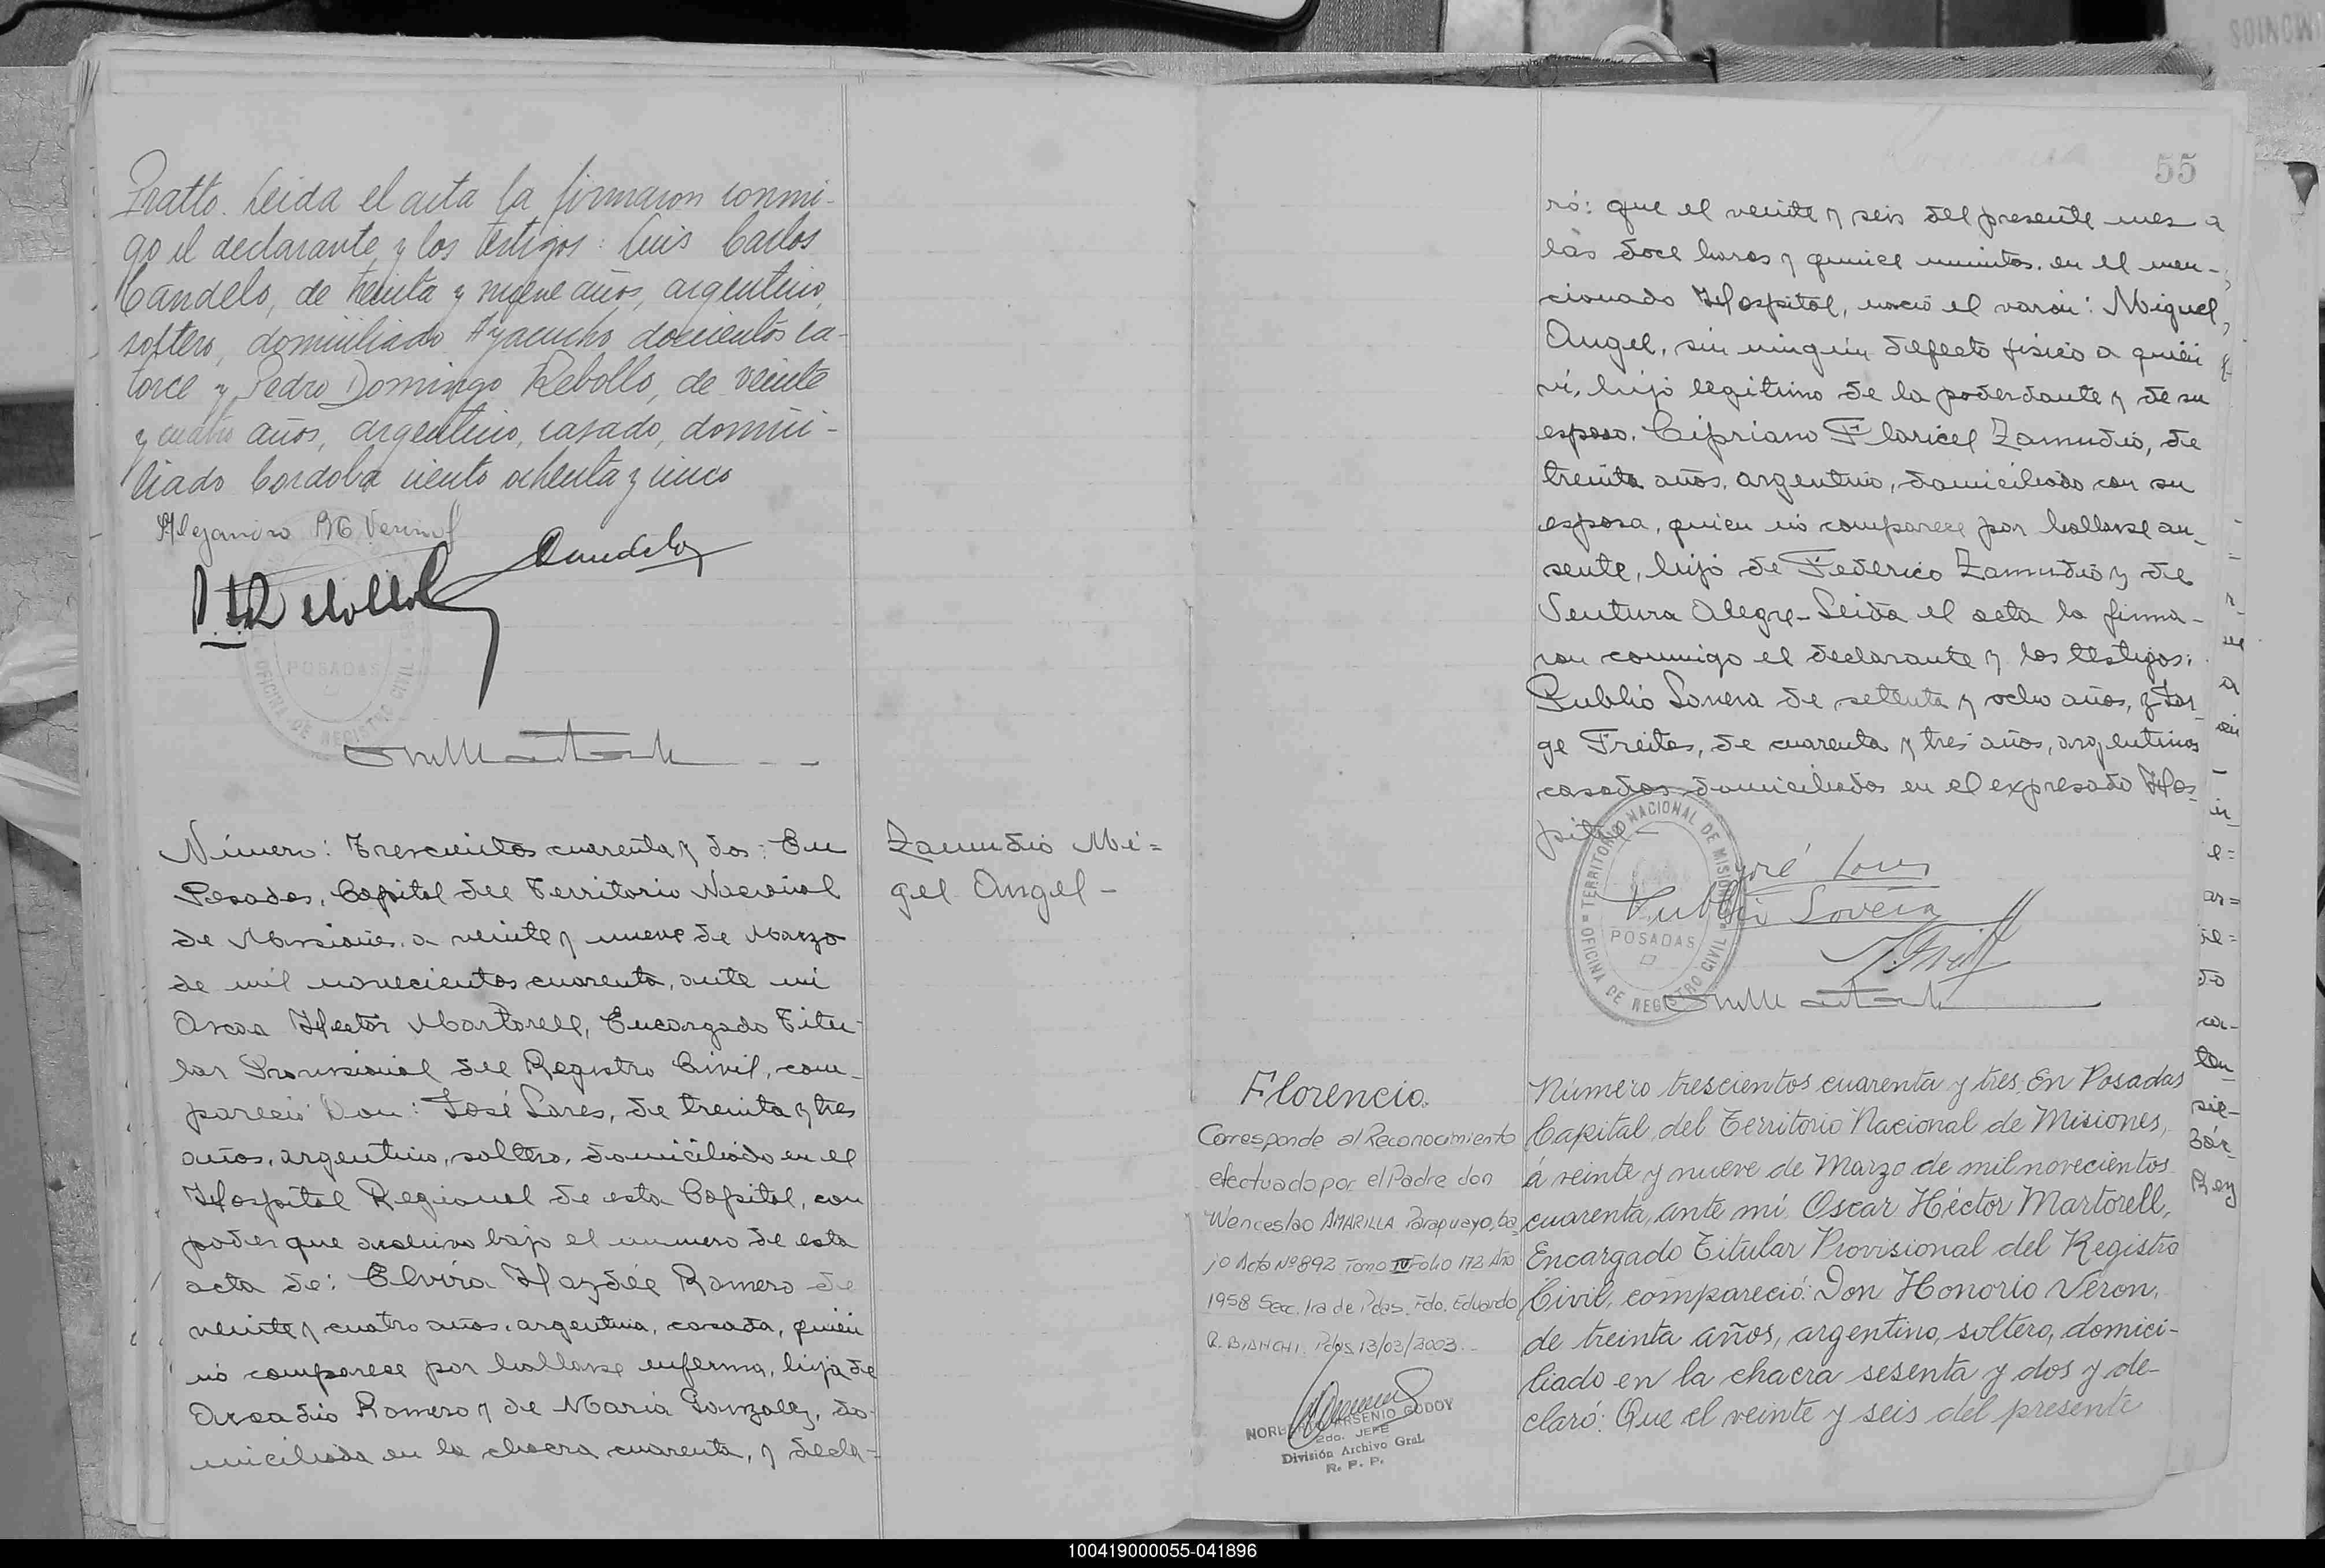 Pratto. Leida el acta la firmaron conmi-
go el declarante y los testigos: Luis Carlos
Candelo, de treinta y nueve años, argentino,
soltero, domiciliado Ayacucho docientos ca-
torce y Pedro Domingo Rebollo, de veinte
y cuatro años, argentino, casado, domici-
liado Cordoba ciento ochenta y cinco
POSADAS
OFICINA DE REGISTRO CIVIL
Número: Trescientos cuarenta y dos: En
Posadas, Capital del Territorio Nacional
de Misiones, a veinte y nueve de Marzo
de mil novecientos cuarenta, ante mi
Oscar Hector Martorell, Encargado Titu-
lar Provisional del Registro Civil, com-
pareció Don: José Lares, de treinta y tres
años, argentino, soltero, domiciliado en el
Hospital Regional de esta Capital, con
poder que archivo bajo el numero de esta
acta de: Elvira Haydée Romero de
veinte y cuatro años, argentina, casada, quien
nó comparece por hallarse enferma, hija de
Arcadio Romero y de María Gonzalez, do-
miciliada en la chacra cuarenta, y decla-
Zamudio Mi=
guel Angel-
55
ró: que el veinte y seis del presente mes a
las doce horas y quince minutos, en el men-
cionado Hospital, nació el varón: Miguel
Angel, sin ningún defecto físico a quién
ví, hijo legítimo de la poderdante y de su
esposo, Cipriano Floricel Zamudio, de
treinta años, argentino, domiciliado con su
esposa, quien nó comparece por hallarse au-
sente, hijo de Federico Zamudio y de
Ventura Alegre- Leida el acta la firma-
ron conmigo el declarante y los testigos:
Publio Lovera de setenta y ocho años, y Jor-
ge Freites, de cuarenta y tres años, argentinos
casados domiciliados en el expresado Hos-
pital-
TERRITORIO NACIONAL DE MISIONES
POSADAS
OFICINA DE REGISTRO CIVIL
Publio Lovera
Florencio.
Corresponde al Reconocimiento
efectuado por el Padre don
Wenceslao AMARILLA Paraguayo, ba
jo Acta Nº 892 Tomo IV Folio 172 Año
1958 Secc. 1ra de Pdas. Fdo. Eduardo
R. BIANCHI. Pdas 13/03/2003.-
ARSENIO GODOY
2do. JEFE
División Archivo Gral.
R. P. P.
Número trescientos cuarenta y tres. En Posadas
Capital, del Territorio Nacional de Misiones,
á veinte y nueve de Marzo de mil novecientos
cuarenta, ante mí, Oscar Héctor Martorell,
Encargado Titular Provisional del Registro
Civil, compareció: Don Honorio Verón,
de treinta años, argentino, soltero, domici-
liado en la chacra sesenta y dos y de-
claró: Que el veinte y seis del presente
100419000055-041896